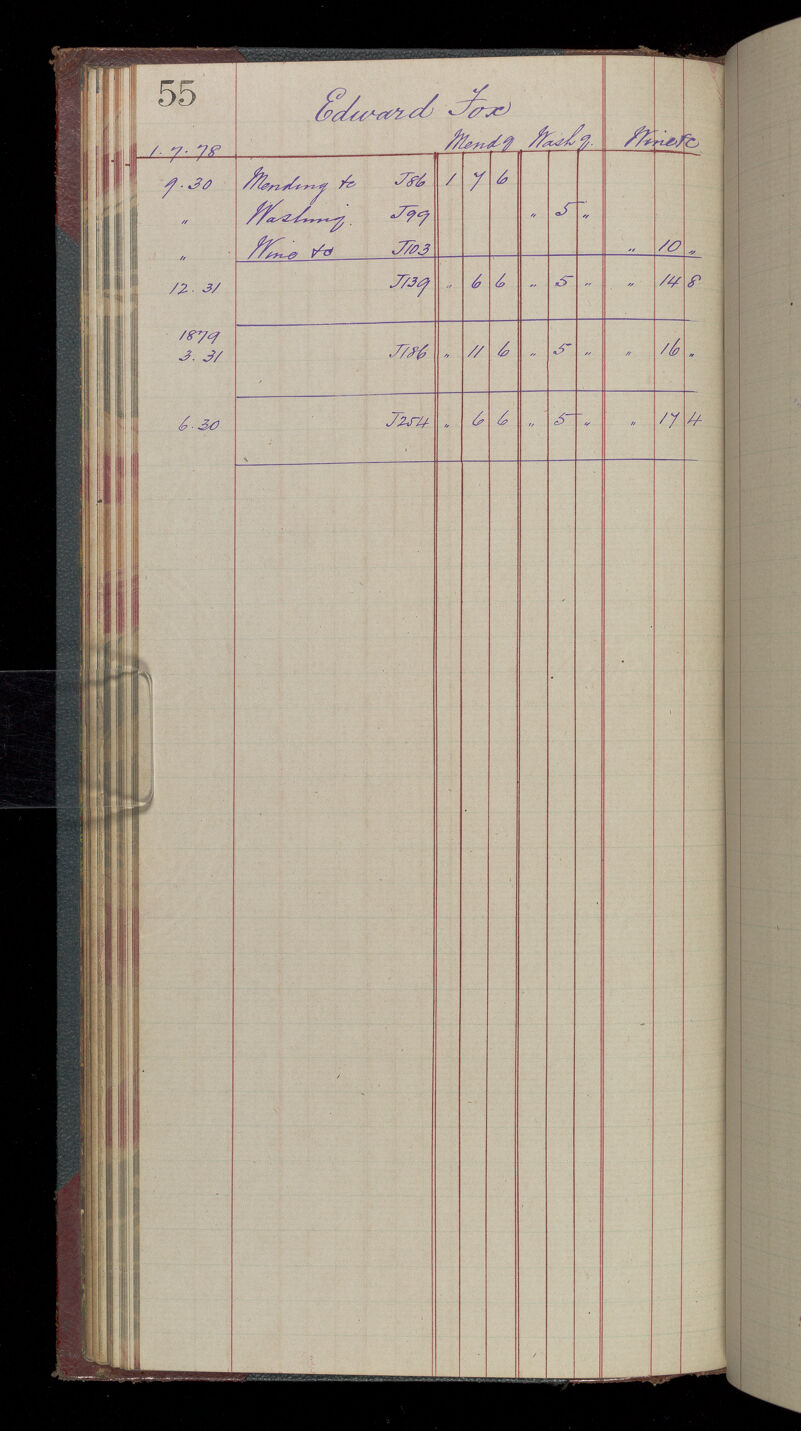 55
Edward Fox
1.7.78 Mendg Washg. Wine &c
9.30 Mending &c J86 1 7 6
" Washing. J99 " 5 "
" Wine &c J103 " 10 "
12.31 J139 " 6 6 " 5 " " 14 8
1879
3.31 J186 " 11 6 " 5 " " 16 "
6.30 J254 " 6 6 " 5 " " 17 4